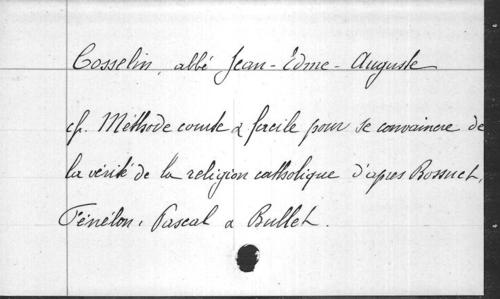 Gosselin, abbé Jean-Edme-Auguste
cf. Méthode courte & facile pour se convaincre de
la vérité de la religion catholique d'apres Bossuet,
Fénélon, Pascal & Bullet.